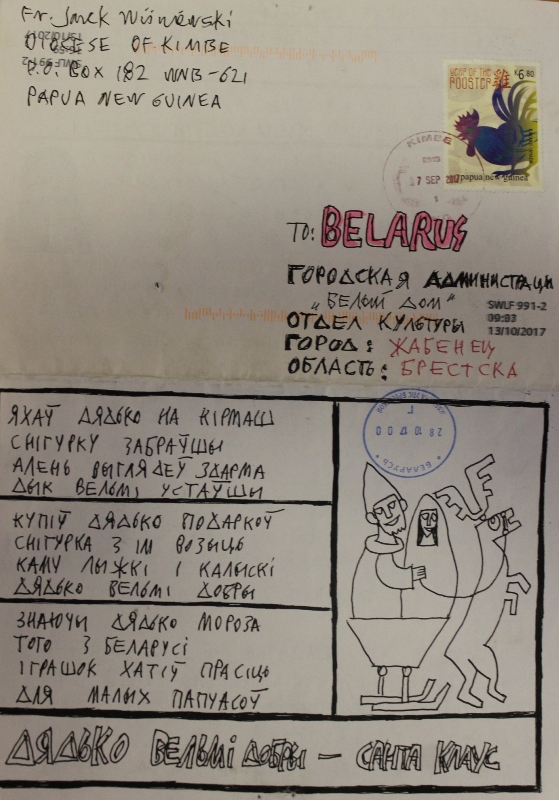 Fr. Jacek Wiśniewski
DIOCESE OF KIMBE
P.O. BOX 182 WNB-621
PAPUA NEW GUINEA
SWLF 991-2
13/10/2017
YEAR OF THE
ROOSTER 雞
K6.80
papua new guinea
KIMBE
7 SEP 2017
1
TO: BELARUS
ГОРОДСКАЯ АДМИНИСТРАЦИ
„БЕЛЫЙ ДОМ“
ОТДЕЛ КУЛЬТУРЫ
ГОРОД: ЖАБЕНЕЦ
ОБЛАСТЬ: БРЕСТСКА
SWLF 991-2
09:03
13/10/2017
28 10 17 00
Г
БЕЛАРУСЬ
ЯХАЎ ДЯДЬКО НА КІРМАШ
СНІГУРКУ ЗАБРАЎШЫ
АЛЕНЬ ВЫГЛЯДЕЎ ЗДАРМА
ДЫК ВЕЛЬМІ УСТАЎШЫ
КУПІЎ ДЯДЬКО ПОДАРКОЎ
СНІГУРКА З ІМ ВОЗЫЦЬ
КАМУ ЛЫЖКІ І КАЛЫСКІ
ДЯДЬКО ВЕЛЬМІ ДОБРЫ
ЗНАЮЧЫ ДЯДЬКО МОРОЗА
ТОГО З БЕЛАРУСІ
ІГРАШОК ХАТІЎ ПРАСІЦЬ
ДЛЯ МАЛЫХ ПАПУАСОЎ
ДЯДЬКО ВЕЛЬМІ ДОБРЫ — САНТА КЛАУС